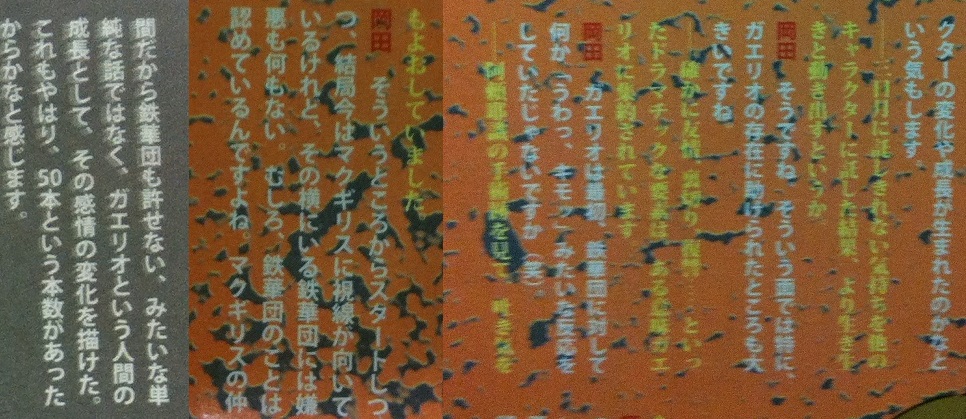 クターの変化や成長が生まれたのかなと
いう気もします。
――三日月に託しきれない気持ちを他の
キャラクターに託した結果、より生き生
きと動き出すというか
岡田 そうですね。そういう面では特に、
ガエリオの存在に助けられたところも大
きいですね。
――確かに友情、裏切り、復讐……といっ
たドラマチックな要素は、ある意味ガエ
リオに集約されています
岡田 ガエリオは最初、鉄華団に対して
何か「うわっ、キモッ」みたいな反応を
していたじゃないですか(笑)。
――阿頼耶識の手術痕を見て、吐き気を
もよおしていました。
岡田 そういうところからスタートしつ
つ、結局今はマクギリスに視線が向いて
いるけれど、その横にいる鉄華団には嫌
悪も何もない。むしろ、鉄華団のことは
認めているんですよね。マクギリスの仲
間だから鉄華団も許せない、みたいな単
純な話ではなく、ガエリオという人間の
成長として、その感情の変化を描けた。
これもやはり、50本という本数があった
からかなと感じます。